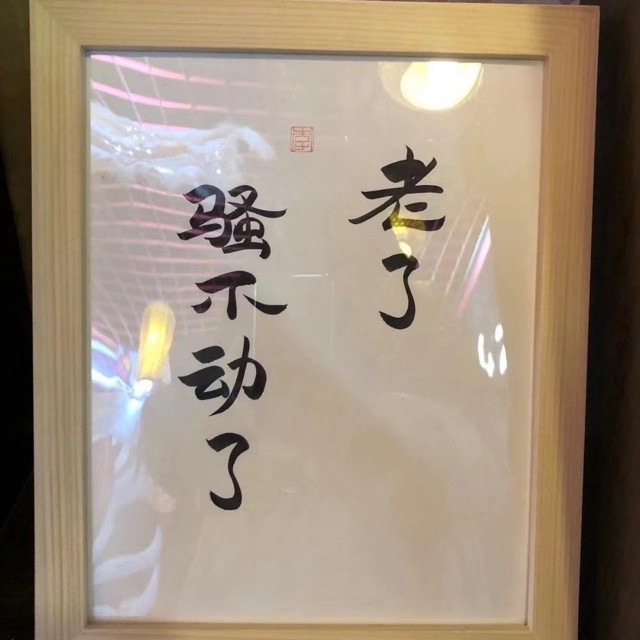 老了
骚不动了